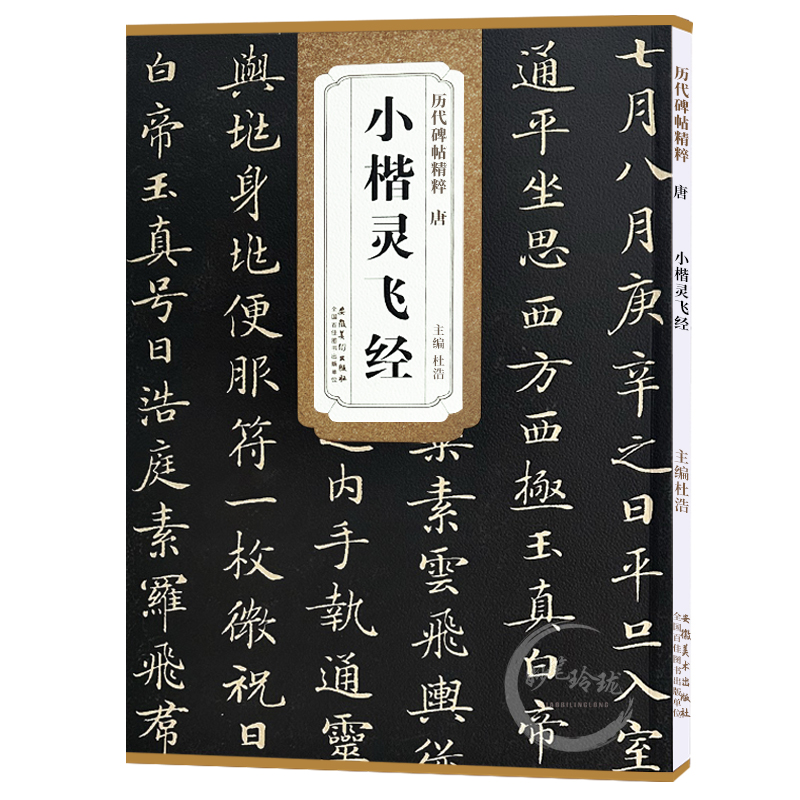 历代碑帖精粹 唐
小楷灵飞经
主编 杜浩
安徽美术出版社
全国百佳图书出版单位
七月八月庚辛之日平旦入室
通平坐思西方西極玉真白帝
素雲飛輿從
内手執通靈
與𡉏身𡉏便服符一枚微祝曰
白帝玉真号曰浩庭素羅飛帬
历代碑帖精粹
唐
小楷灵飞经
主编杜浩
安徽美术出版社
全国百佳图书出版单位
玲珑
LINGLONG